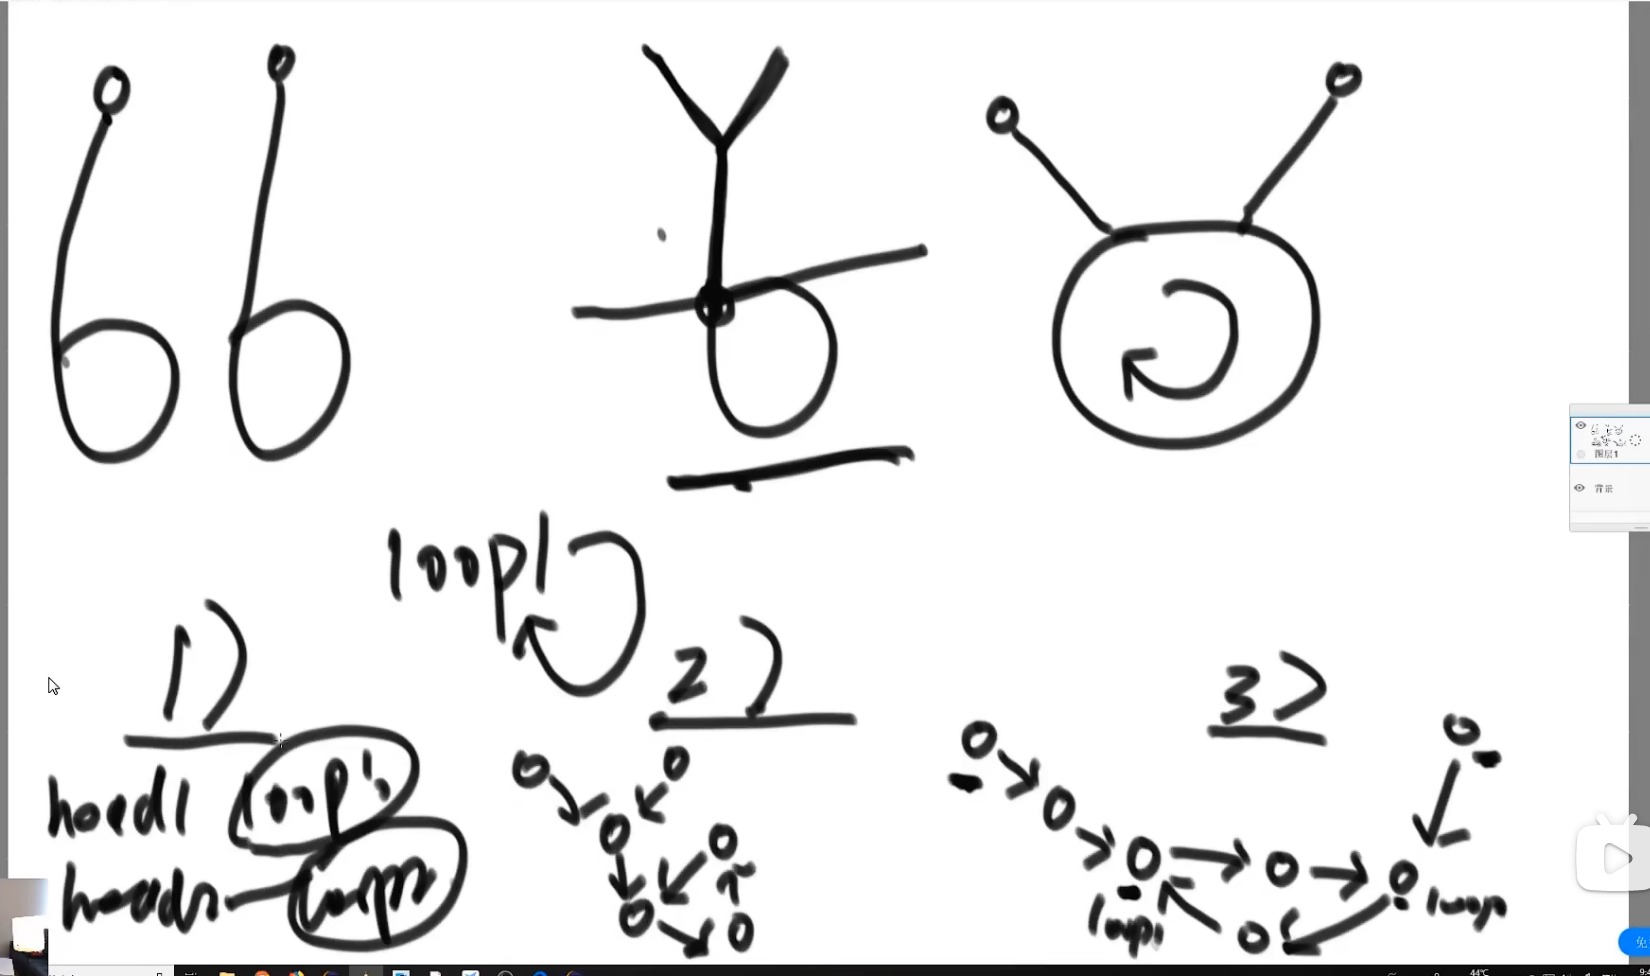 loop1
1)
2)
3)
head1 loop1
head2 loop2
loop1
loop2
图层1
背景
免
44℃